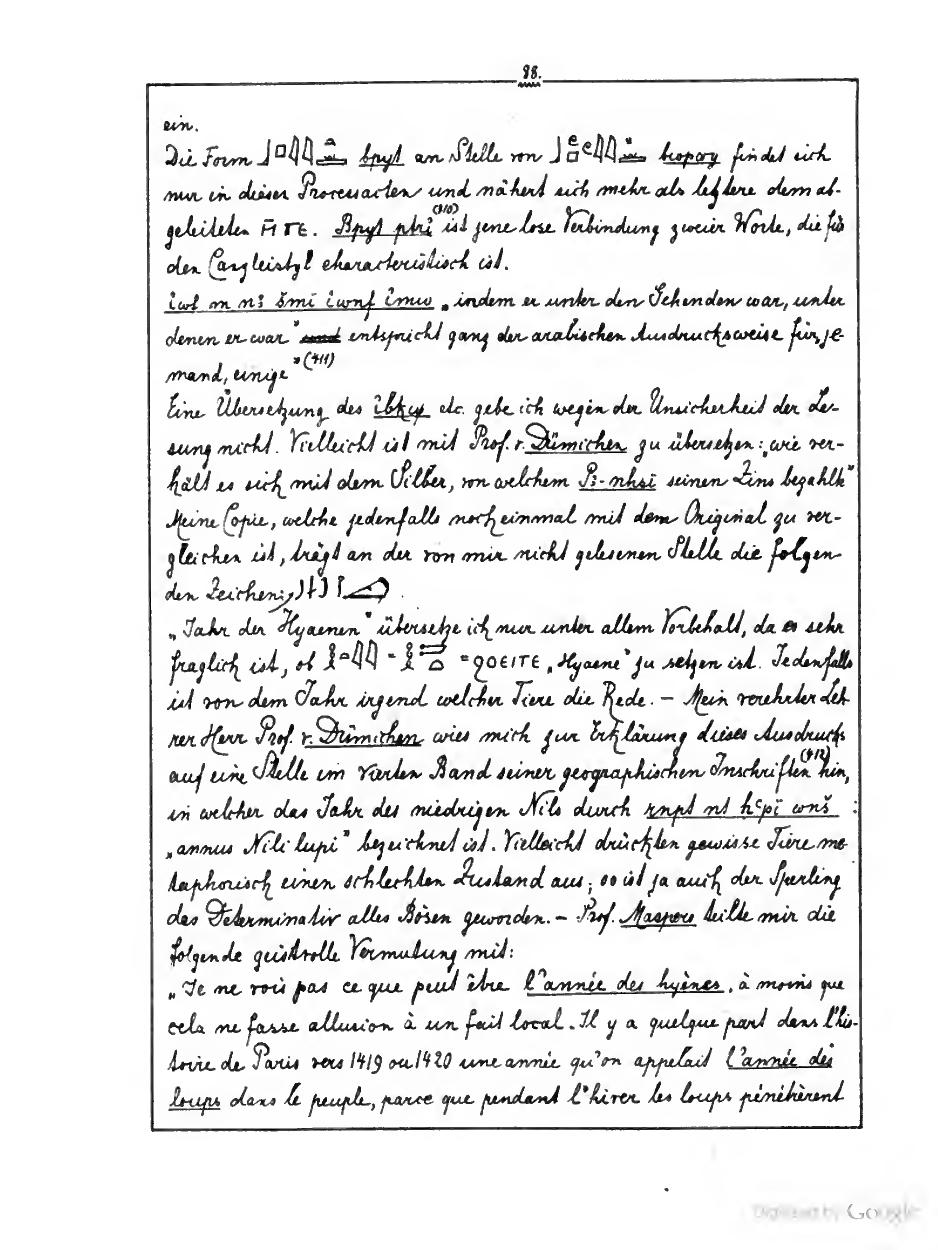 98.
ein.
Die Form bpyt an Stelle von findet sich
nur in dieser Processacten und nähert sich mehr als letztere dem ab-
geleiteten ⲠⲦⲈ. Bpyt ptrỉ (910) ist jene lose Verbindung zweier Worte, die für
den Canzleistyl characteristisch ist.
„indem er unter den Gehenden war, unter
denen er war" entspricht ganz der arabischen Ausdrucksweise für „je-
mand, einige" (411)
Eine Übersetzung des etc. gebe ich wegen der Unsicherheit der Le-
sung nicht. Vielleicht ist mit Prof. v. Dümichen zu übersetzen: „wie ver-
hält es sich mit dem Silber, von welchem Pꜣ-nḥsi seinen Zins bezahlt"
Meine Copie, welche jedenfalls noch einmal mit dem Original zu ver-
gleichen ist, trägt an der von mir nicht gelesenen Stelle die folgen-
den Zeichen:
„Jahr der Hyaenen" übersetze ich nur unter allem Vorbehalt, da es sehr
fraglich ist, ob = = ϨΟΕΙΤΕ „Hyaene" zu setzen ist. Jedenfalls
ist von dem Jahr irgend welcher Tiere die Rede. – Mein verehrter Leh-
rer Herr Prof. v. Dümichen wies mich zur Erklärung dieses Ausdrucks
auf eine Stelle im vierten Band seiner geographischen Inschriften (412) hin,
in welcher das Jahr des niedrigen Nils durch rnpt nt ḥꜥpỉ wnš :
„annus Nili lupi" bezeichnet ist. Vielleicht drückten gewisse Tiere me-
taphorisch einen schlechten Zustand aus; so ist ja auch der Sperling
das Determinativ alles Bösen geworden. – Prof. Maspero teilte mir die
folgende geistvolle Vermutung mit:
„Je ne vois pas ce que peut être l'année des hyènes, à moins que
cela ne fasse allusion à un fait local. Il y a quelque part dans l'his-
toire de Paris vers 1419 ou 1420 une année qu'on appelait l'année des
loups dans le peuple, parce que pendant l'hiver les loups pénétrèrent
Digitized by Google